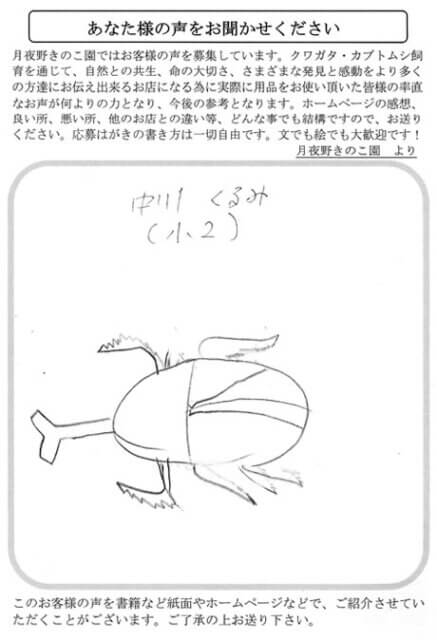 あなた様の声をお聞かせください
月夜野きのこ園ではお客様の声を募集しています。クワガタ・カブトムシ飼
育を通じて、自然との共生、命の大切さ、さまざまな発見と感動をより多く
の方達にお伝え出来るお店になる為に実際に用品をお使い頂いた皆様の率直
なお声が何よりの力となり、今後の参考となります。ホームページの感想、
良い所、悪い所、他のお店との違い等、どんな事でも結構ですので、お送り
ください。応募はがきの書き方は一切自由です。文でも絵でも大歓迎です！
月夜野きのこ園　より
中川 くるみ
(小2)
このお客様の声を書籍など紙面やホームページなどで、ご紹介させてい
ただくことがございます。ご了承の上お送り下さい。